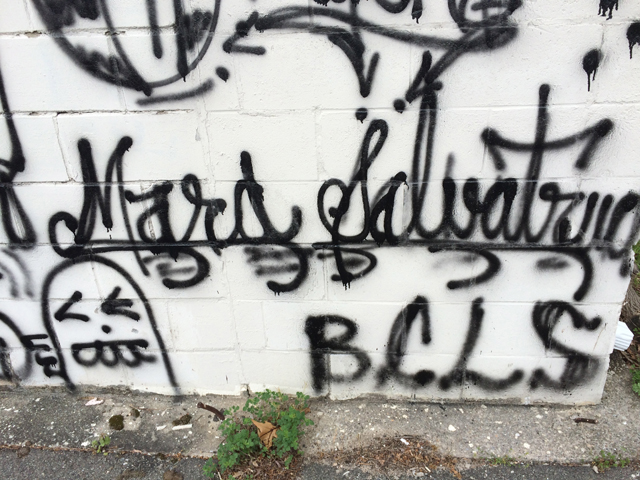 Mara Salvatrucha
BCLS